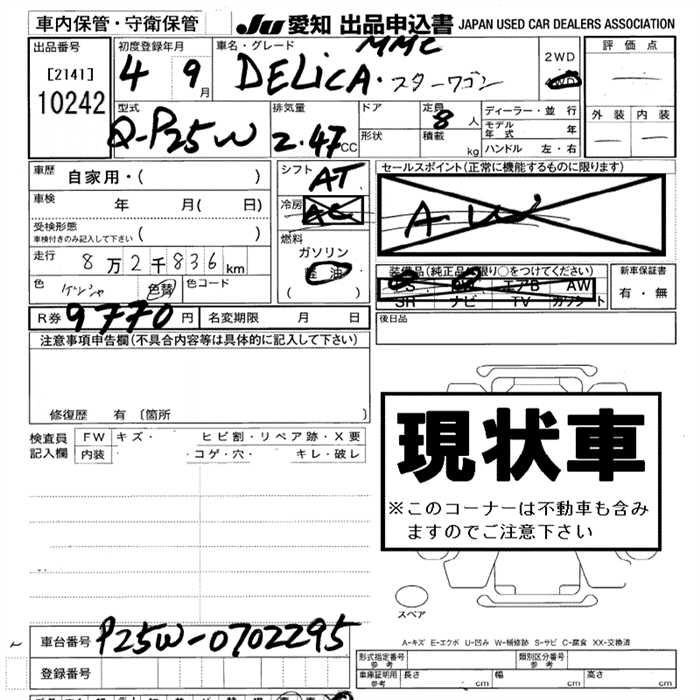 車内保管・守衛保管 JU 愛知 出品申込書 JAPAN USED CAR DEALERS ASSOCIATION
出品番号 初度登録年月 車名・グレード MMC 2WD 評価点
[2141] 4 9月 DELiCA・スターワゴン
10242
型式 排気量 ドア 定員 8人 ディーラー・並行 外装 内装
Q-P25W 2.47CC 形状 積載 kg モデル年式 年
ハンドル 左・右
車歴 自家用・( ) シフト AT セールスポイント(正常に機能するものに限ります)
車検 年 月( 日) 冷房 AC A W
受検形態 ( )
車検付きのみ記入して下さい
燃料
ガソリン
軽油
( )
走行 8万2千836km
装備品(純正品に限り○をつけてください) 新車保証書
PS エアB AW 有・無
SR ナビ TV カセット
色 色替 色コード
R券 9770円 名変期限 月 日 後日品
注意事項申告欄(不具合内容等は具体的に記入して下さい)
修復歴 有 〔箇所 〕
検査員記入欄 FW キズ・ ヒビ割・リペア跡・X要
内装 コゲ・穴・ キレ・破レ
現状車
※このコーナーは不動車も含み
ますのでご注意下さい
スペア
A-キズ E-エクボ U-凹み W-補修跡 S-サビ C-腐食 XX-交換済
車台番号 P25W-0702295
形式指定番号 参考 類別区分番号 参考
登録番号 車庫証明用 参考 長さ cm 幅 cm 高さ cm